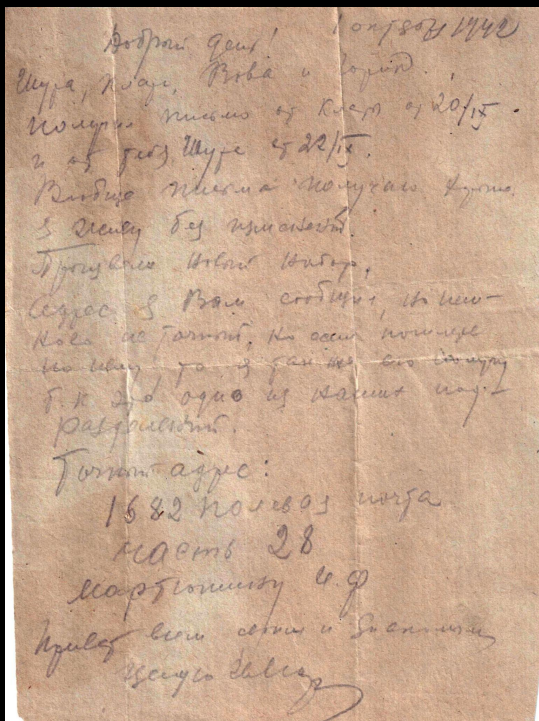 1 октября 1942
Добрый день!
Шура, Клара, Вова и
Получил письмо от Клары от 20/IX.
и от тебя Шура от 22/IX.
Вообще письма получаю хорошо.
Я живу без изменений.
Произвели новый набор,
Адрес я Вам сообщил, но нем-
ного не точный. Но если пошлете
по нему то я так же его получу
т.к это одно из наших под-
разделений.
Точный адрес:
1682 полевая почта
часть 28
Мартюшину И.Ф
Привет всем своим и знакомым
Целую Ива